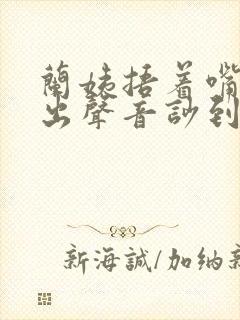 蘭姨捂着嘴
出聲音訬到
新海誠/加纳新